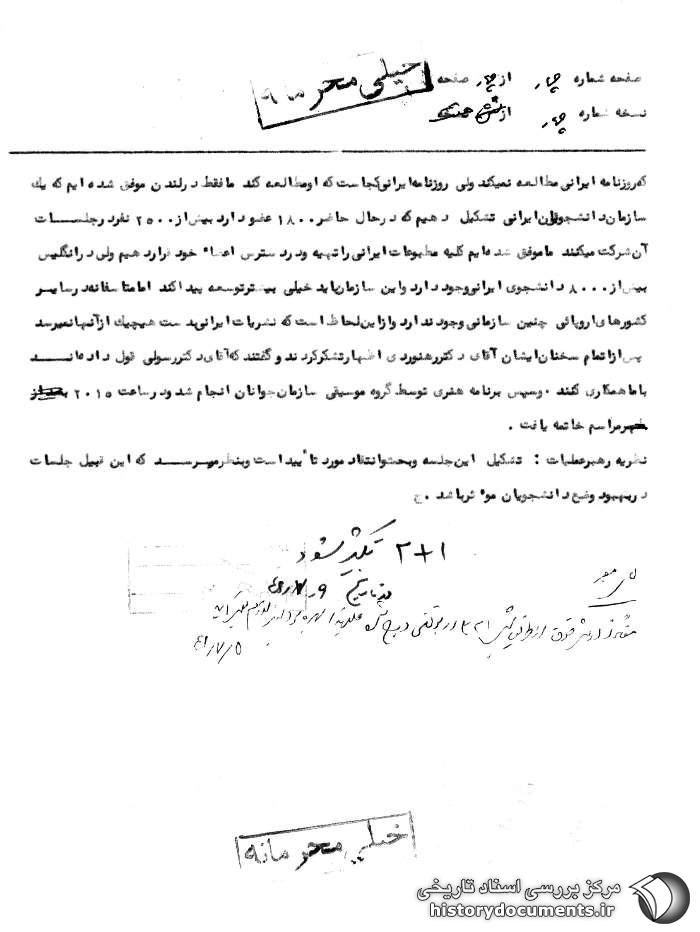 خیلی محرمانه
صفحه شماره چهار از چهار صفحه
نسخه شماره چهار از
که روزنامه ایرانی مطالعه نمیکند ولی روزنامه ایرانی کجاست که او مطالعه کند ما فقط در لندن موفق شده ایم که یك
سازمان دانشجویان ایرانی تشکیل دهیم که در حال حاضر ۱۸۰۰ عضو دارد بیش از ۲۵۰۰ نفر در جلسات
آن شرکت میکنند ما موفق شده ایم کلیه مطبوعات ایرانی را تهیه و در دسترس اعضاء خود قرار دهیم ولی در انگلیس
بیش از ۸۰۰۰ دانشجوی ایرانی وجود دارد و این سازمان باید خیلی بیشتر توسعه پیدا کند اما متاسفانه در سایر
کشورهای اروپائی چنین سازمانی وجود ندارد و از این لحاظ است که نشریات ایرانی بدست هیچیك از آنها نمیرسد
پس از اتمام سخنان ایشان آقای دکتر رهنوردی اظهار تشکر کردند و گفتند که آقای دکتر رسولی قول داده اند
با ما همکاری کنند . و سپس برنامه هنری توسط گروه موسیقی سازمان جوانان انجام شد و در ساعت ۲۰۱۵
مراسم خاتمه یافت .
نظریه رهبر عملیات : تشکیل این جلسه و بحث و انتقاد مورد تأیید است و بنظر میرسد که این قبیل جلسات
در بهبود وضع دانشجویان موثر باشد . ج
۲+۱ تکثیر شود
خیلی محرمانه
مرکز بررسی اسناد تاریخی
historydocuments.ir